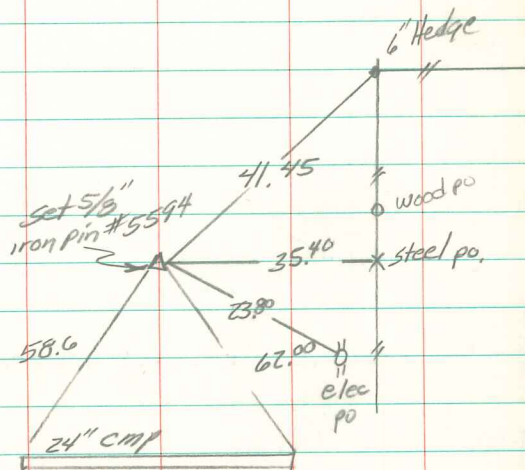 6" Hedge
41.45
wood po
set 5/8"
iron pin #5594
35.40
steel po.
23.80
58.6
62.00
elec
po
24" cmp